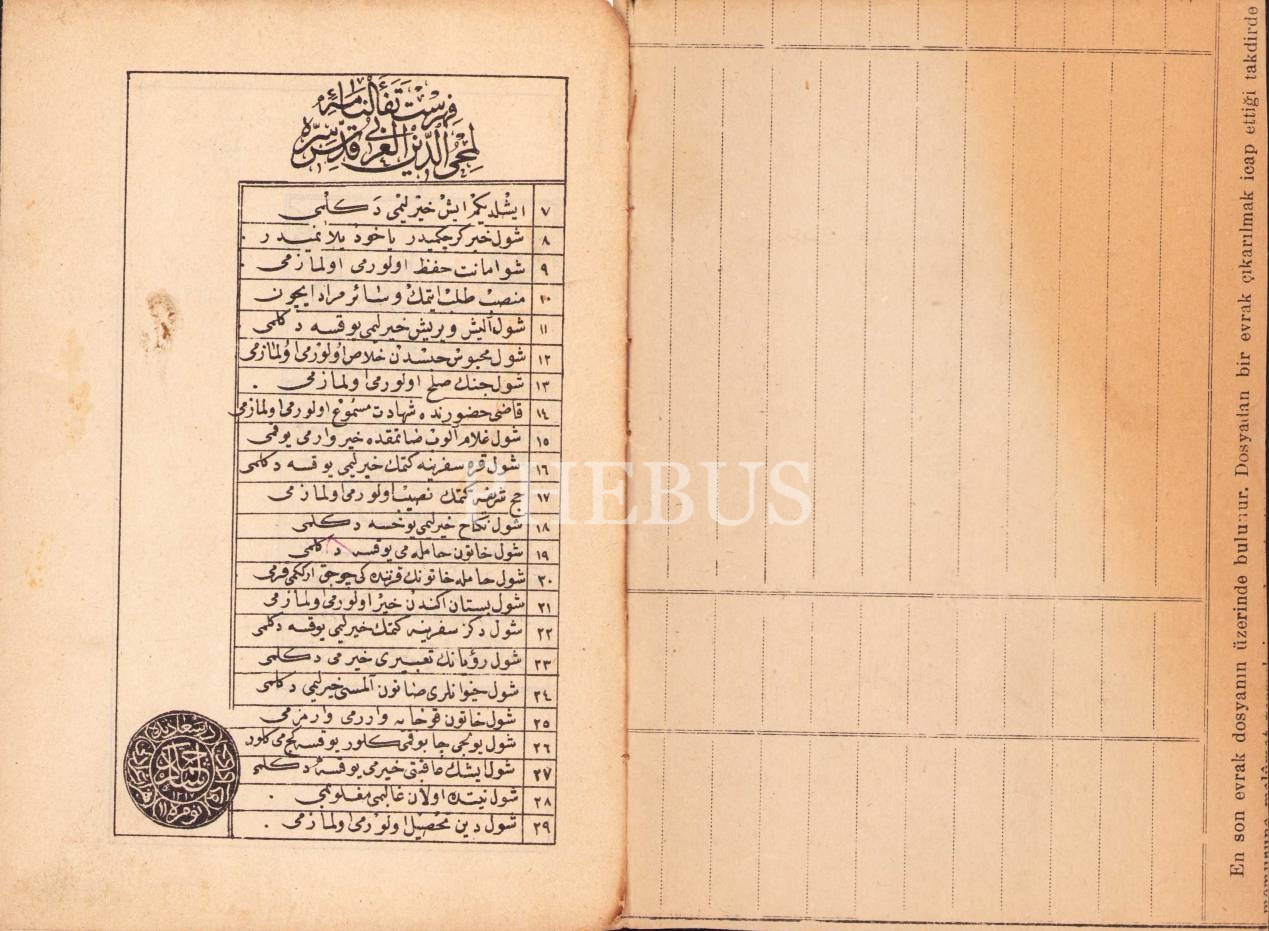 فهرست تفألنامهٔ
لمحي الدين العربي قدس سره
٧ ايشلديكم ايش خيرليمى دكلمى
٨ شول خبر كرچكميدر ياخود يلانميدر
٩ شو امانت حفظ اولورمى اولمازمى
١٠ منصب طلب ايتمك وسائر مراد ايچون
١١ شول آليش ويريش خيرليمى يوقسه دكلمى
١٢ شول محبوس حبسدن خلاص اولورمى اولمازمى
١٣ شول جنك صلح اولورمى اولمازمى
١٤ قاضى حضورنده شهادت مسموع اولورمى اولمازمى
١٥ شول غلام آلوب صاتمقده خير وارمى يوقمى
١٦ شول قره سفرينه كتمك خيرليمى يوقسه دكلمى
١٧ حج شريفه كتمك نصيب اولورمى اولمازمى
١٨ شول نكاح خيرليمى يوخسه دكلمى
١٩ شول خاتون حامله مى يوقسه دكلمى
٢٠ شول حامله خاتونك قرننده كى چوجق اركمى قزمى
٢١ شول بستان اكندن خير اولورمى اولمازمى
٢٢ شول دكز سفرينه كتمك خيرليمى يوقسه دكلمى
٢٣ شول رؤيانك تعبيرى خيرمى دكلمى
٢٤ شول حيوانلرى صاتون آلمسى خيرليمى دكلمى
٢٥ شول خاتون قوجايه واررمى وارمزمى
٢٦ شول يولجى چابوقمى كلور يوقسه كچمى كلور
٢٧ شول ايشك عاقبتى خيرمى يوقسه دكلمى
٢٨ شول نيتده اولان غالبمى مغلوبمى
٢٩ شول دين تحصيل اولورمى اولمازمى
نومرو
PHEBUS
En son evrak dosyanın üzerinde bulunur. Dosyadan bir evrak çıkarılmak icap ettiği takdirde